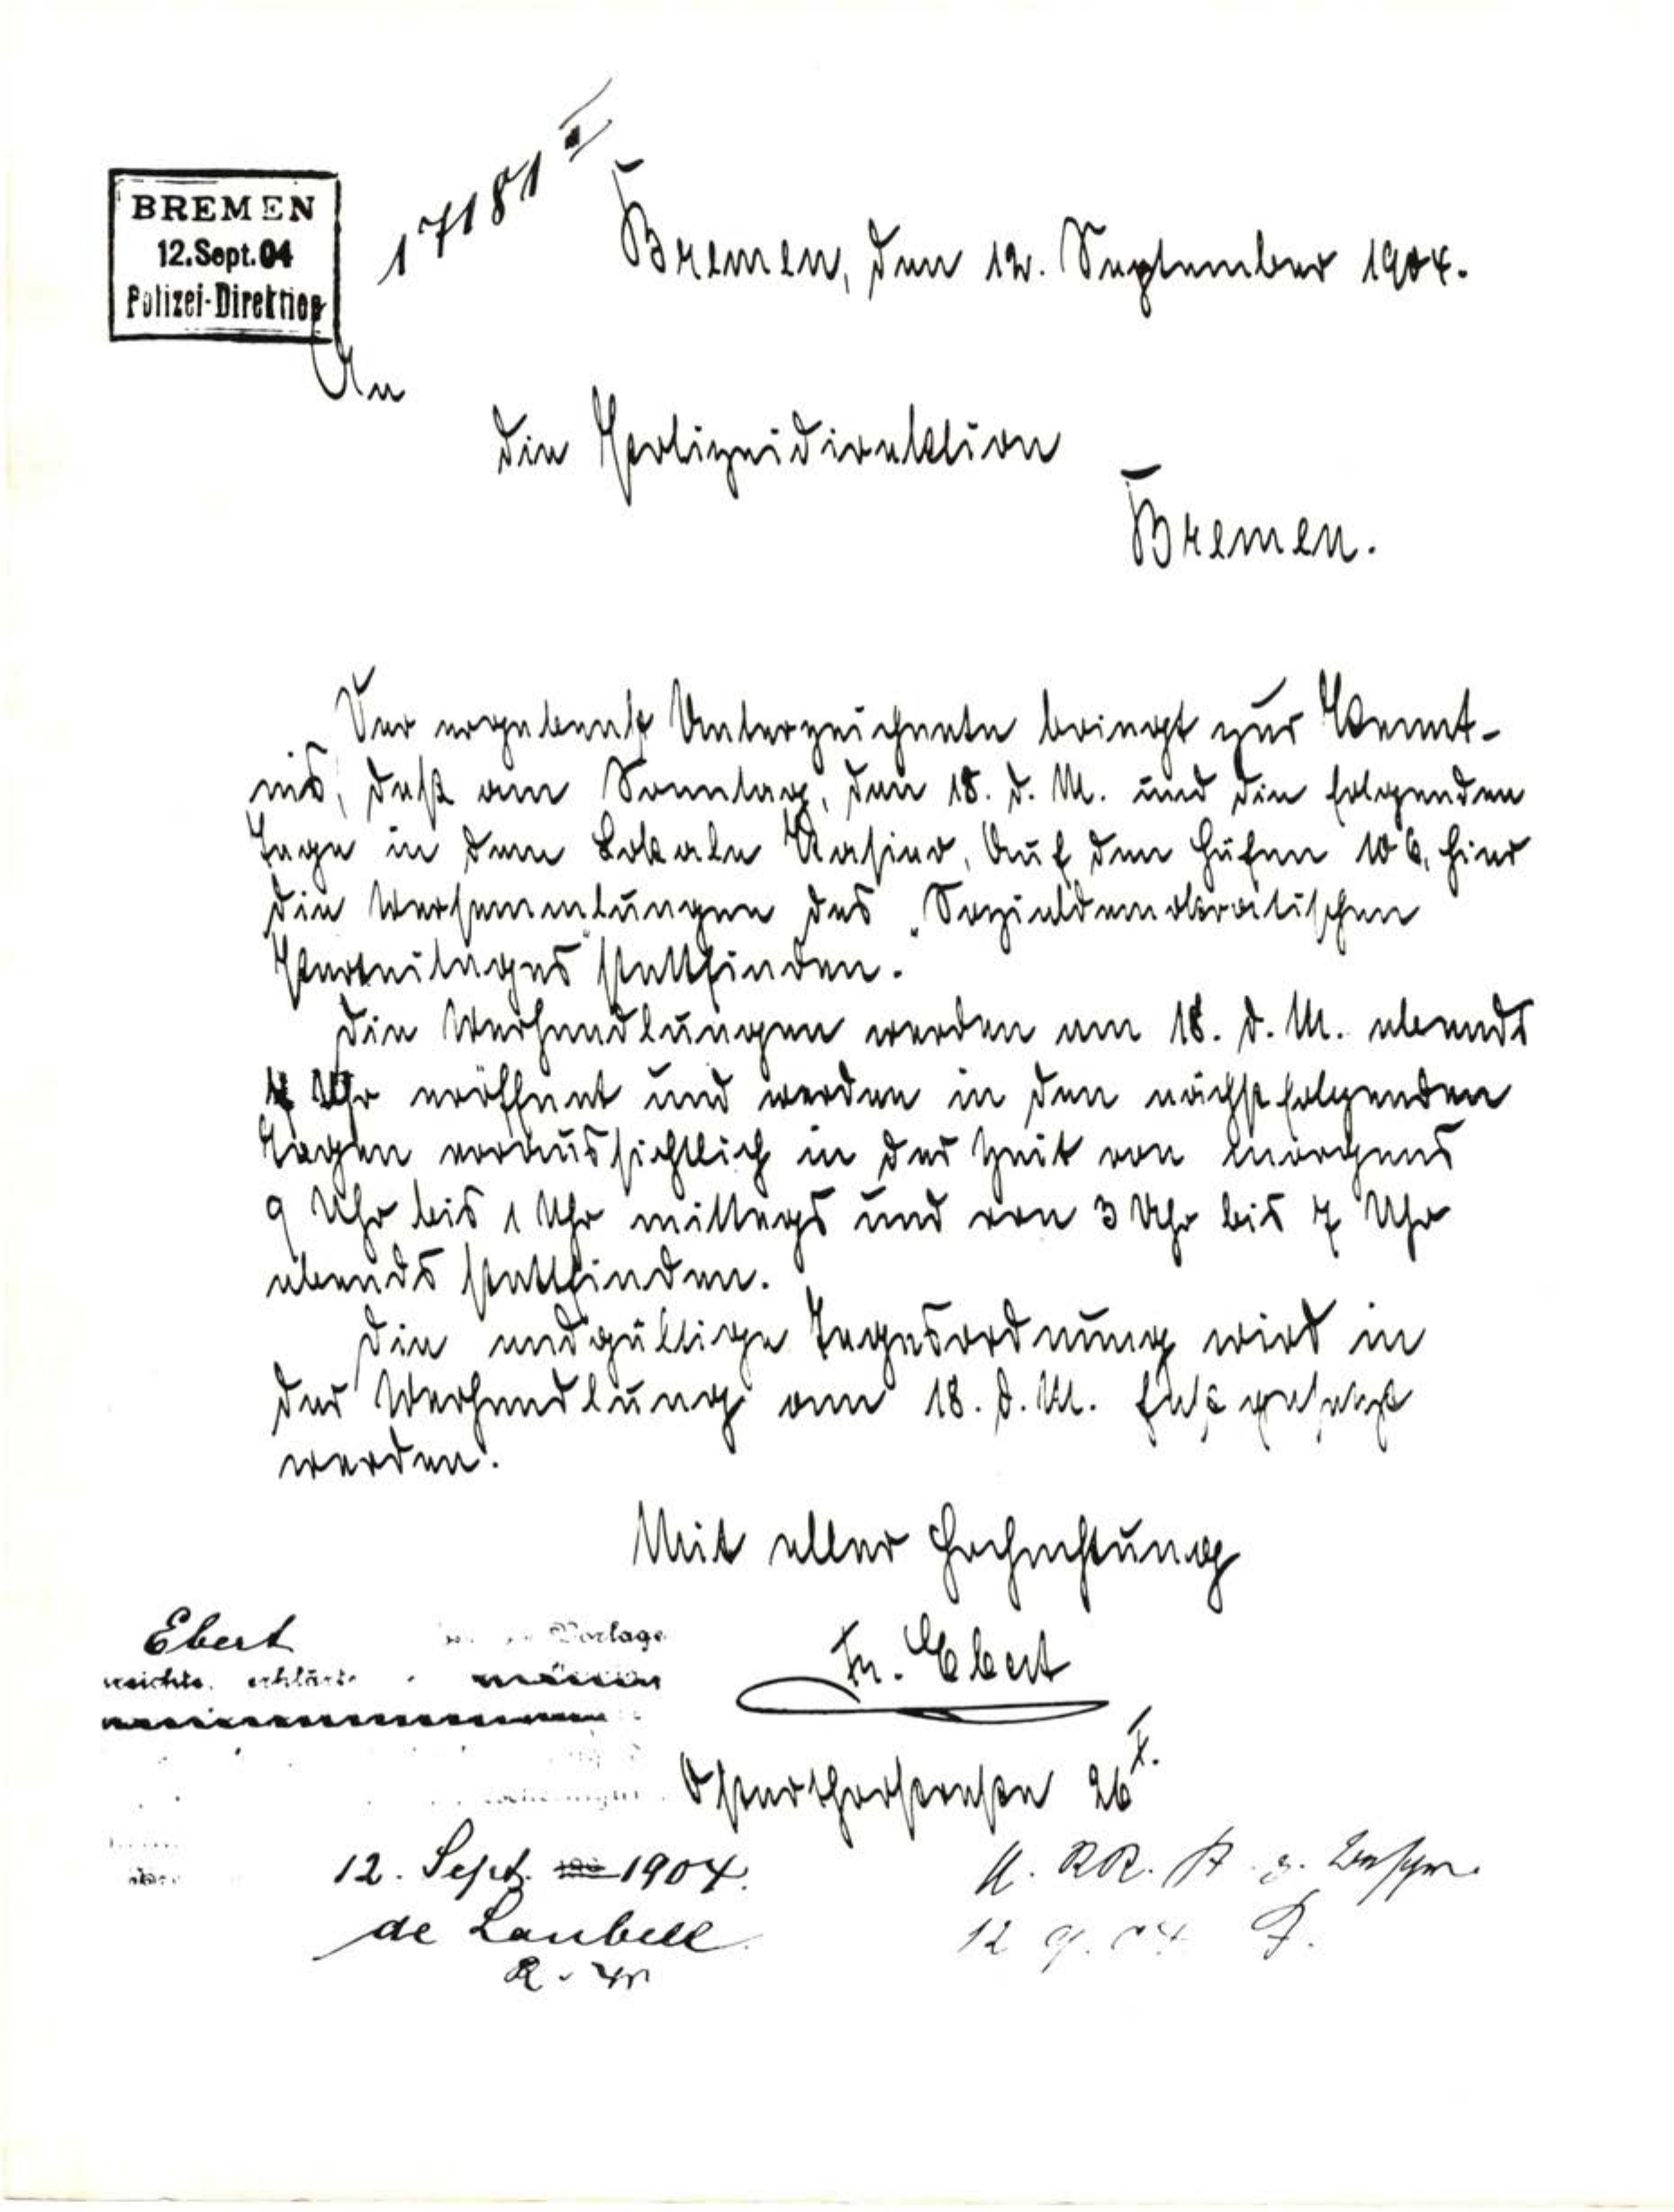 BREMEN
12. Sept. 04
Polizei-Direktion
17181
Bremen, den 12. September 1904.
An
die Polizeidirektion
Bremen.
Der ergebenst Unterzeichnete bringt zur Kennt-
nis, daß am Sonntag, den 18. d. M. und die folgenden
Tage in dem Lokale Kasino, Auf den Häfen 106, hier
die Versammlungen des „Sozialdemokratischen
Parteitages" stattfinden.
Die Verhandlungen werden am 18. d. M. abends
7 Uhr eröffnet und werden in den nächstfolgenden
Tagen voraussichtlich in der Zeit von morgens
9 Uhr bis 1 Uhr mittags und von 3 Uhr bis 7 Uhr
abends stattfinden.
Die endgültige Tagesordnung wird in
der Verhandlung am 18. d. M. festgesetzt
werden.
Mit aller Hochachtung
Fr. Ebert
Ebert Vorlage
erklärte
Osterthorstraße 26
12. Sept. 1904.
de Laubell
12 9. 04